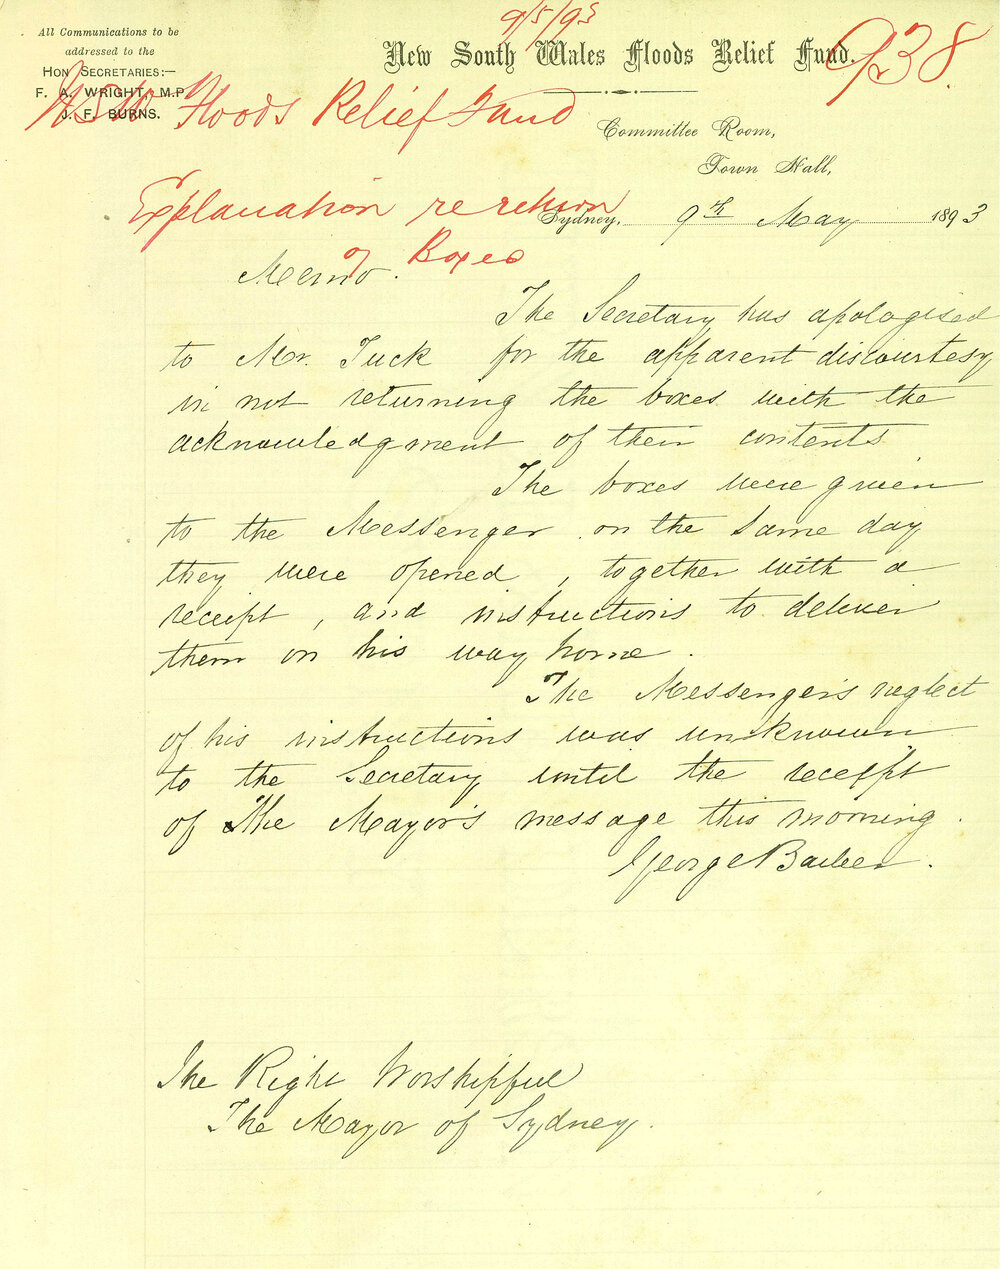 9/5/93
938.
All Communications to be
addressed to the
HON. SECRETARIES:—
F. A. WRIGHT, M.P.
J. F. BURNS.
New South Wales Floods Relief Fund.
NSW Floods Relief Fund
Committee Room,
Town Hall,
Explanation re return
of Boxes
Sydney, 9th May 1893
Memo.
The Secretary has apologised
to Mr. Tuck for the apparent discourtesy
in not returning the boxes with the
acknowledgment of their contents
The boxes were given
to the Messenger on the same day
they were opened, together with a
receipt, and instructions to deliver
them on his way home.
The Messenger's neglect
of his instructions was unknown
to the Secretary until the receipt
of The Mayor's message this morning.
George Barber.
The Right Worshipful
The Mayor of Sydney.